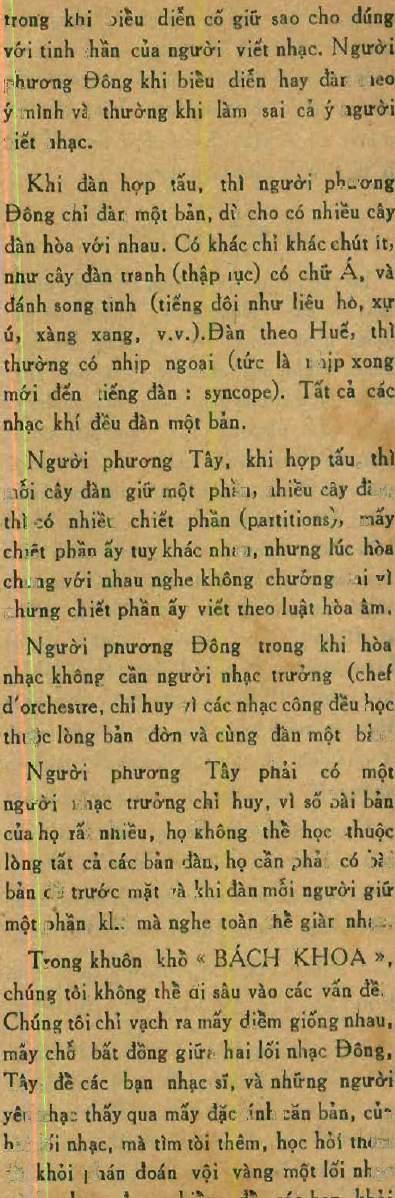 trong khi biểu diễn cố giữ sao cho đúng
với tinh thần của người viết nhạc. Người
phương Đông khi biểu diễn hay đàn theo
ý mình và thường khi làm sai cả ý người
viết nhạc.
Khi đàn hợp tấu, thì người phương
Đông chỉ đàn một bản, dù cho có nhiều cây
đàn hòa với nhau. Có khác chỉ khác chút ít,
như cây đàn tranh (thập lục) có chữ Á, và
đánh song tinh (tiếng đôi như liêu hò, xự
ú, xàng xang, v.v.).Đàn theo Huế, thì
thường có nhịp ngoại (tức là nhịp xong
mới đến tiếng đàn : syncope). Tất cả các
nhạc khí đều đàn một bản.
Người phương Tây, khi hợp tấu thì
mỗi cây đàn giữ một phần, nhiều cây
thì có nhiều chiết phần (partitions), mấy
chiết phần ấy tuy khác nhau, nhưng lúc hòa
chung với nhau nghe không chướng tai vì
chừng chiết phần ấy viết theo luật hòa âm.
Người phương Đông trong khi hòa
nhạc không cần người nhạc trưởng (chef
d'orchestre, chỉ huy vì các nhạc công đều học
thuộc lòng bản đờn và cùng đàn một
Người phương Tây phải có một
người nhạc trưởng chỉ huy, vì số bài bản
của họ rất nhiều, họ không thể học thuộc
lòng tất cả các bản đàn, họ cần phải có bài
bản để trước mặt và khi đàn mỗi người giữ
một phần mà nghe toàn thể
Trong khuôn khổ « BÁCH KHOA »,
chúng tôi không thể đi sâu vào các vấn đề.
Chúng tôi chỉ vạch ra mấy điểm giống nhau,
mấy chỗ bất đồng giữa hai lối nhạc Đông,
Tây để các bạn nhạc sĩ, và những người
yêu nhạc thấy qua mấy đặc tính căn bản, của
hai lối nhạc, mà tìm tòi thêm, học hỏi thêm
khỏi phán đoán vội vàng một lối nhạc